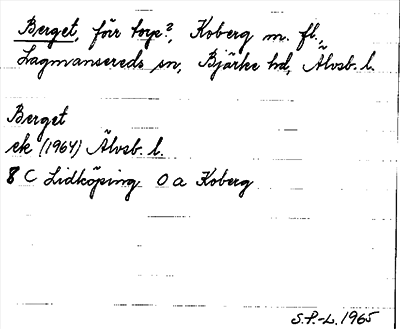 Berget, förr torp?, Koberg m. fl.,
Lagmansereds sn, Bjärke hd, Älvsb. l.
Berget
ek (1964) Älvsb. l.
8 C Lidköping 0 a Koberg
S.P.-L. 1965